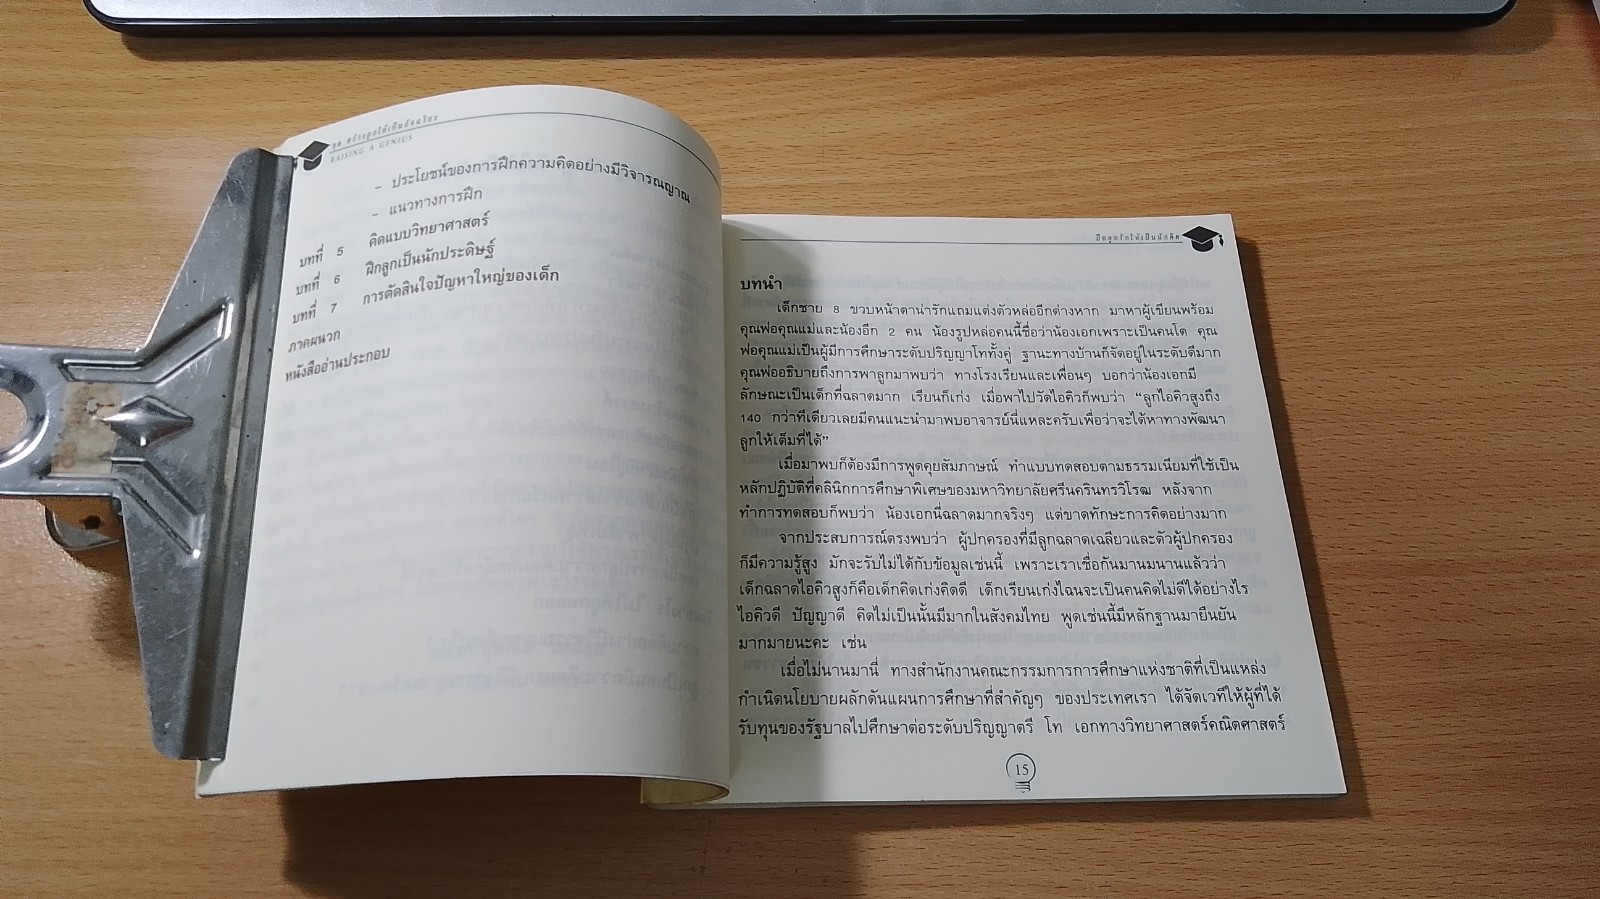 ชุด สร้างลูกให้เป็นอัจฉริยะ
RAISING A GENIUS
- ประโยชน์ของการฝึกความคิดอย่างมีวิจารณญาณ
- แนวทางการฝึก
บทที่ 5 คิดแบบวิทยาศาสตร์
บทที่ 6 ฝึกลูกเป็นนักประดิษฐ์
บทที่ 7 การตัดสินใจปัญหาใหญ่ของเด็ก
ภาคผนวก
หนังสืออ่านประกอบ
ฝึกลูกรักให้เป็นนักคิด
บทนำ
เด็กชาย 8 ขวบหน้าตาน่ารักแถมแต่งตัวหล่ออีกต่างหาก มาหาผู้เขียนพร้อม
คุณพ่อคุณแม่และน้องอีก 2 คน น้องรูปหล่อคนนี้ชื่อว่าน้องเอกเพราะเป็นคนโต คุณ
พ่อคุณแม่เป็นผู้มีการศึกษาระดับปริญญาโททั้งคู่ ฐานะทางบ้านก็จัดอยู่ในระดับดีมาก
คุณพ่ออธิบายถึงการพาลูกมาพบว่า ทางโรงเรียนและเพื่อนๆ บอกว่าน้องเอกมี
ลักษณะเป็นเด็กที่ฉลาดมาก เรียนก็เก่ง เมื่อพาไปวัดไอคิวก็พบว่า “ลูกไอคิวสูงถึง
140 กว่าทีเดียวเลยมีคนแนะนำมาพบอาจารย์นี่แหละครับเพื่อว่าจะได้หาทางพัฒนา
ลูกให้เต็มที่ได้”
เมื่อมาพบก็ต้องมีการพูดคุยสัมภาษณ์ ทำแบบทดสอบตามธรรมเนียมที่ใช้เป็น
หลักปฏิบัติที่คลินิกการศึกษาพิเศษของมหาวิทยาลัยศรีนครินทรวิโรฒ หลังจาก
ทำการทดสอบก็พบว่า น้องเอกนี่ฉลาดมากจริงๆ แต่ขาดทักษะการคิดอย่างมาก
จากประสบการณ์ตรงพบว่า ผู้ปกครองที่มีลูกฉลาดเฉลียวและตัวผู้ปกครอง
ก็มีความรู้สูง มักจะรับไม่ได้กับข้อมูลเช่นนี้ เพราะเราเชื่อกันมานมนานแล้วว่า
เด็กฉลาดไอคิวสูงก็คือเด็กคิดเก่งคิดดี เด็กเรียนเก่งไฉนจะเป็นคนคิดไม่ดีได้อย่างไร
ไอคิวดี ปัญญาดี คิดไม่เป็นนั้นมีมากในสังคมไทย พูดเช่นนี้มีหลักฐานมายืนยัน
มากมายนะคะ เช่น
เมื่อไม่นานมานี้ ทางสำนักงานคณะกรรมการการศึกษาแห่งชาติที่เป็นแหล่ง
กำเนิดนโยบายผลักดันแผนการศึกษาที่สำคัญๆ ของประเทศเรา ได้จัดเวทีให้ผู้ที่ได้
รับทุนของรัฐบาลไปศึกษาต่อระดับปริญญาตรี โท เอกทางวิทยาศาสตร์คณิตศาสตร์
15